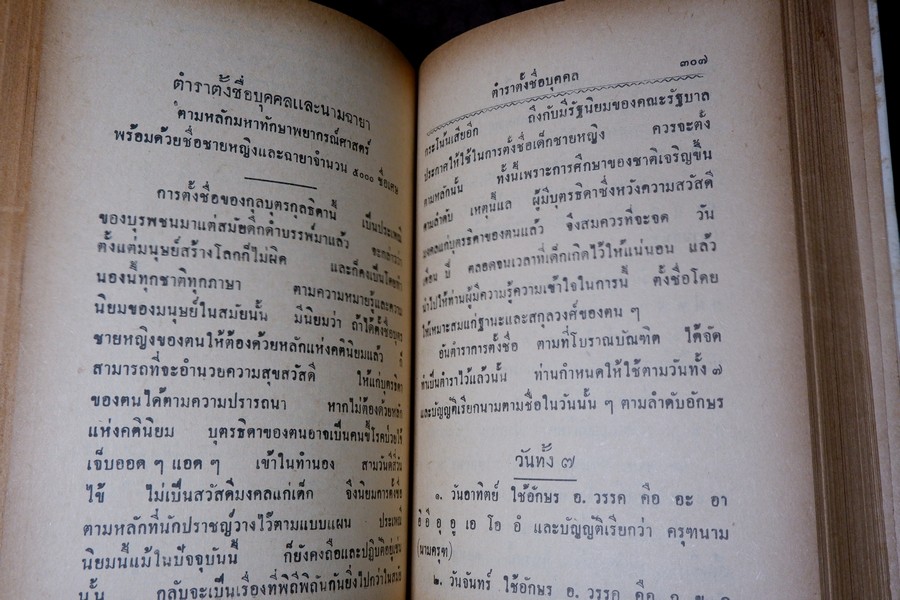 ตำราตั้งชื่อบุคคลและนามฉายา
ตามหลักมหาทักษาพยากรณ์ศาสตร์
พร้อมด้วยชื่อชายหญิงและฉายาจำนวน ๕๐๐๐ ชื่อเศษ
การตั้งชื่อของกุลบุตรกุลธิดานี้ เป็นประเพณี
ของบุรพชนมาแต่สมัยดึกดำบรรพ์มาแล้ว จะกล่าวว่า
ตั้งแต่มนุษย์สร้างโลกก็ไม่ผิด และก็คงเป็นโดย
นองนี้ทุกชาติทุกภาษา ตามความหมายรู้และความ
นิยมของมนุษย์ในสมัยนั้น มีนิยมว่า ถ้าได้ตั้งชื่อบุตร
ชายหญิงของตนให้ต้องด้วยหลักแห่งคตินิยมแล้ว ก็
สามารถที่จะอำนวยความสุขสวัสดี ให้แก่บุตรธิดา
ของตนได้ตามความปรารถนา หากไม่ต้องด้วยหลัก
แห่งคตินิยม บุตรธิดาของตนอาจเป็นคนขี้โรคป่วยไข้
เจ็บออด ๆ แอด ๆ เข้าในทำนอง สามวันดีสี่วัน
ไข้ ไม่เป็นสวัสดีมงคลแก่เด็ก จึงนิยมการตั้งชื่อ
ตามหลักที่นักปราชญ์วางไว้ตามแบบแผน ประเพณี
นิยมนี้แม้ในปัจจุบันนี้ ก็ยังคงถือและปฏิบัติอยู่เช่น
นั้น กลับจะเป็นเรื่องที่พิถีพิถันกันยิ่งไปกว่าในสมัย
ตำราตั้งชื่อบุคคล ๓๐๗
กระโน้นเสียอีก ถึงกับมีรัฐนิยมของคณะรัฐบาล
ประกาศให้ใช้ในการตั้งชื่อเด็กชายหญิง ควรจะตั้ง
ตามหลักนั้น ทั้งนี้เพราะการศึกษาของชาติเจริญขึ้น
ตามลำดับ เหตุนี้แล ผู้มีบุตรธิดาซึ่งหวังความสวัสดี
มงคลแก่บุตรธิดาของตนแล้ว จึงสมควรที่จะจด วัน
เดือน ปี คลอดจนเวลาที่เด็กเกิดไว้ให้แน่นอน แล้ว
นำไปให้ท่านผู้มีความรู้ความเข้าใจในการนี้ ตั้งชื่อโดย
ให้เหมาะสมแก่ฐานะและสกุลวงศ์ของตน ๆ
อันตำราการตั้งชื่อ ตามที่โบราณบัณฑิต ได้จัด
ทำเป็นตำราไว้แล้วนั้น ท่านกำหนดให้ใช้ตามวันทั้ง ๗
และบัญญัติเรียกนามตามชื่อในวันนั้น ๆ ตามลำดับอักษร
วันทั้ง ๗
๑. วันอาทิตย์ ใช้อักษร อ. วรรค คือ อะ อา
อิ อี อุ อู เอ โอ อํ และบัญญัติเรียกว่า ครุฑนาม
(นามครุฑ)
๒. วันจันทร์ ใช้อักษร อ. วรรค คือ